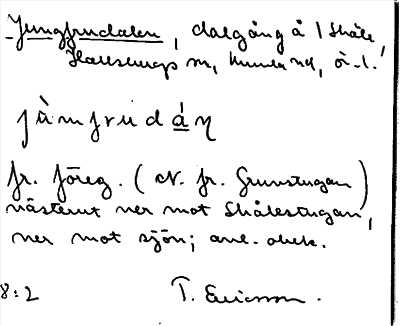 Jungfrudalen, dalgång å 1 Skåle,
Hallslungs m, Kumla hd, Ö-l.
jùmfrudáṇ
fr. föreg. (N. fr. Grunstugan)
västerut ner mot Skålestugan,
ner mot sjön; anl. obek.
8:2 T. Ericsson.